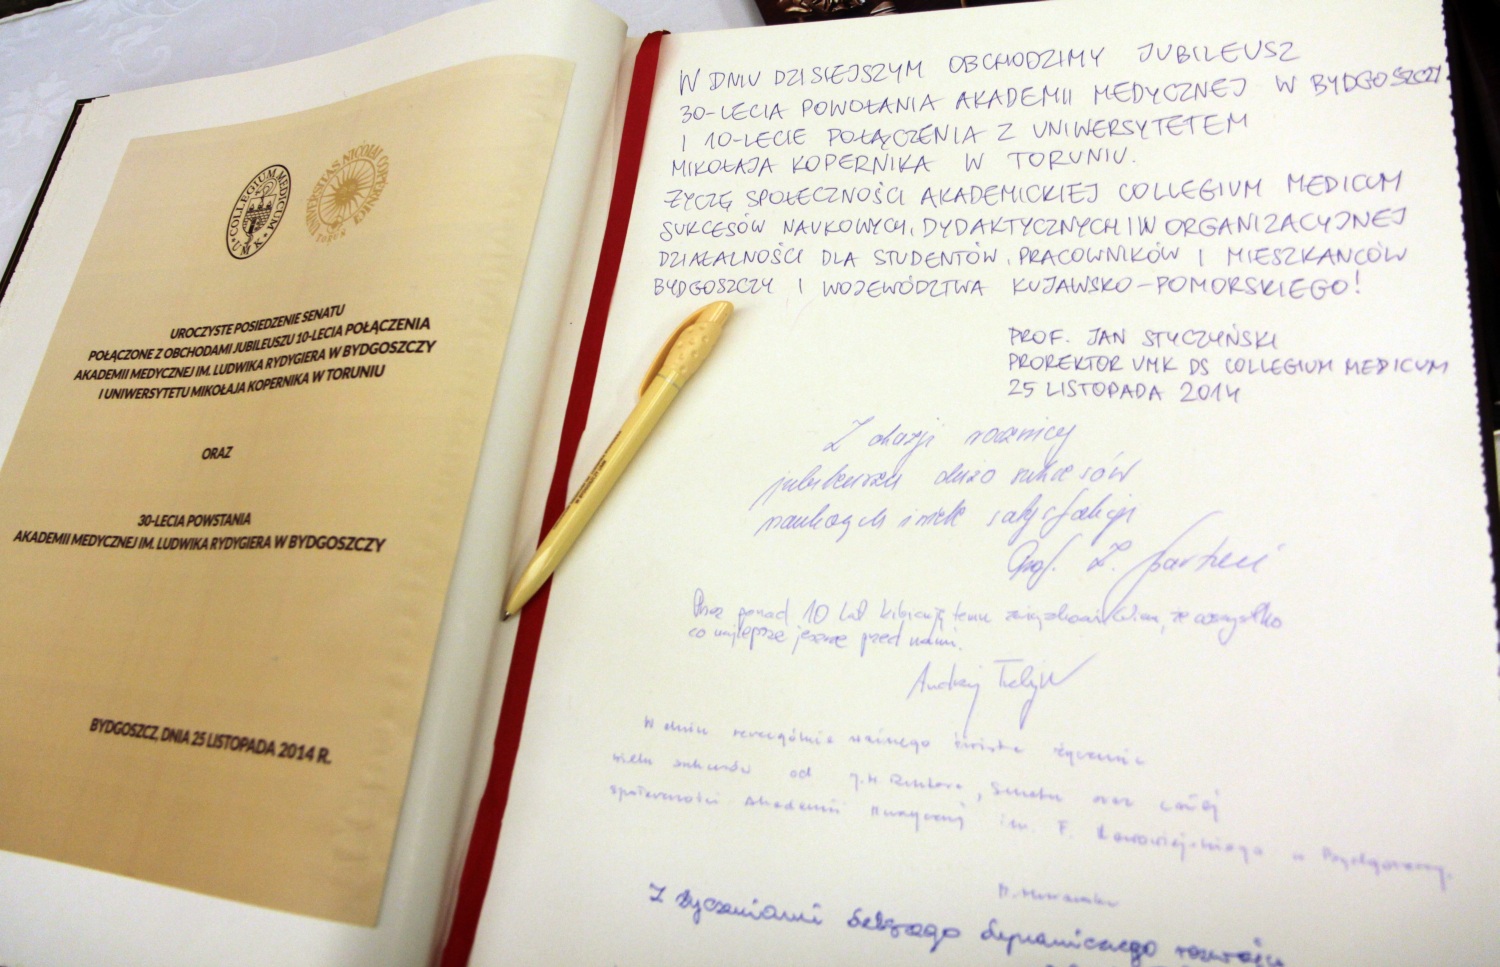 COLLEGIUM MEDICUM
UMK
UNIVERSITAS NICOLAI COPERNICI
TORUŃ
UROCZYSTE POSIEDZENIE SENATU
POŁĄCZONE Z OBCHODAMI JUBILEUSZU 10-LECIA POŁĄCZENIA
AKADEMII MEDYCZNEJ IM. LUDWIKA RYDYGIERA W BYDGOSZCZY
I UNIWERSYTETU MIKOŁAJA KOPERNIKA W TORUNIU
ORAZ
30-LECIA POWSTANIA
AKADEMII MEDYCZNEJ IM. LUDWIKA RYDYGIERA W BYDGOSZCZY
BYDGOSZCZ, DNIA 25 LISTOPADA 2014 R.
W DNIU DZISIEJSZYM OBCHODZIMY JUBILEUSZ
30-LECIA POWOŁANIA AKADEMII MEDYCZNEJ W BYDGOSZCZY
I 10-LECIE POŁĄCZENIA Z UNIWERSYTETEM
MIKOŁAJA KOPERNIKA W TORUNIU.
ŻYCZĘ SPOŁECZNOŚCI AKADEMICKIEJ COLLEGIUM MEDICUM
SUKCESÓW NAUKOWYCH, DYDAKTYCZNYCH I W ORGANIZACYJNEJ
DZIAŁALNOŚCI DLA STUDENTÓW, PRACOWNIKÓW I MIESZKAŃCÓW
BYDGOSZCZY I WOJEWÓDZTWA KUJAWSKO-POMORSKIEGO!
PROF. JAN STYCZYŃSKI
PROREKTOR UMK DS COLLEGIUM MEDICUM
25 LISTOPADA 2014
Z okazji rocznicy
jubileuszu dużo sukcesów
naukowych i wiele satysfakcji
Prof. Z.
Przez ponad 10 lat kibicuję temu związkowi. Wiem, że wszystko
co najlepsze jeszcze przed nami.
Andrzej
W dniu szczególnie ważnego święta życzenia
wielu sukcesów od J.M. Rektora, Senatu oraz całej
społeczności Akademii Muzycznej im. F. Nowowiejskiego w Bydgoszczy.
Z życzeniami dalszego dynamicznego rozwoju